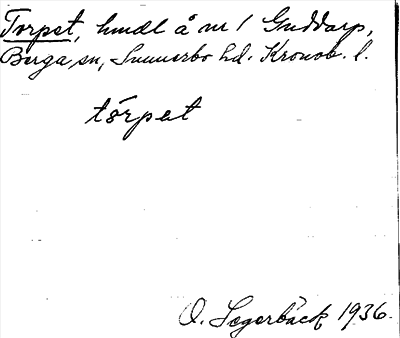 Torpet, hmdl å nr 1 Guddarp,
Berga sn, Sunnerbo hd. Kronob. l.
tórpet
O. Segerbäck 1936.